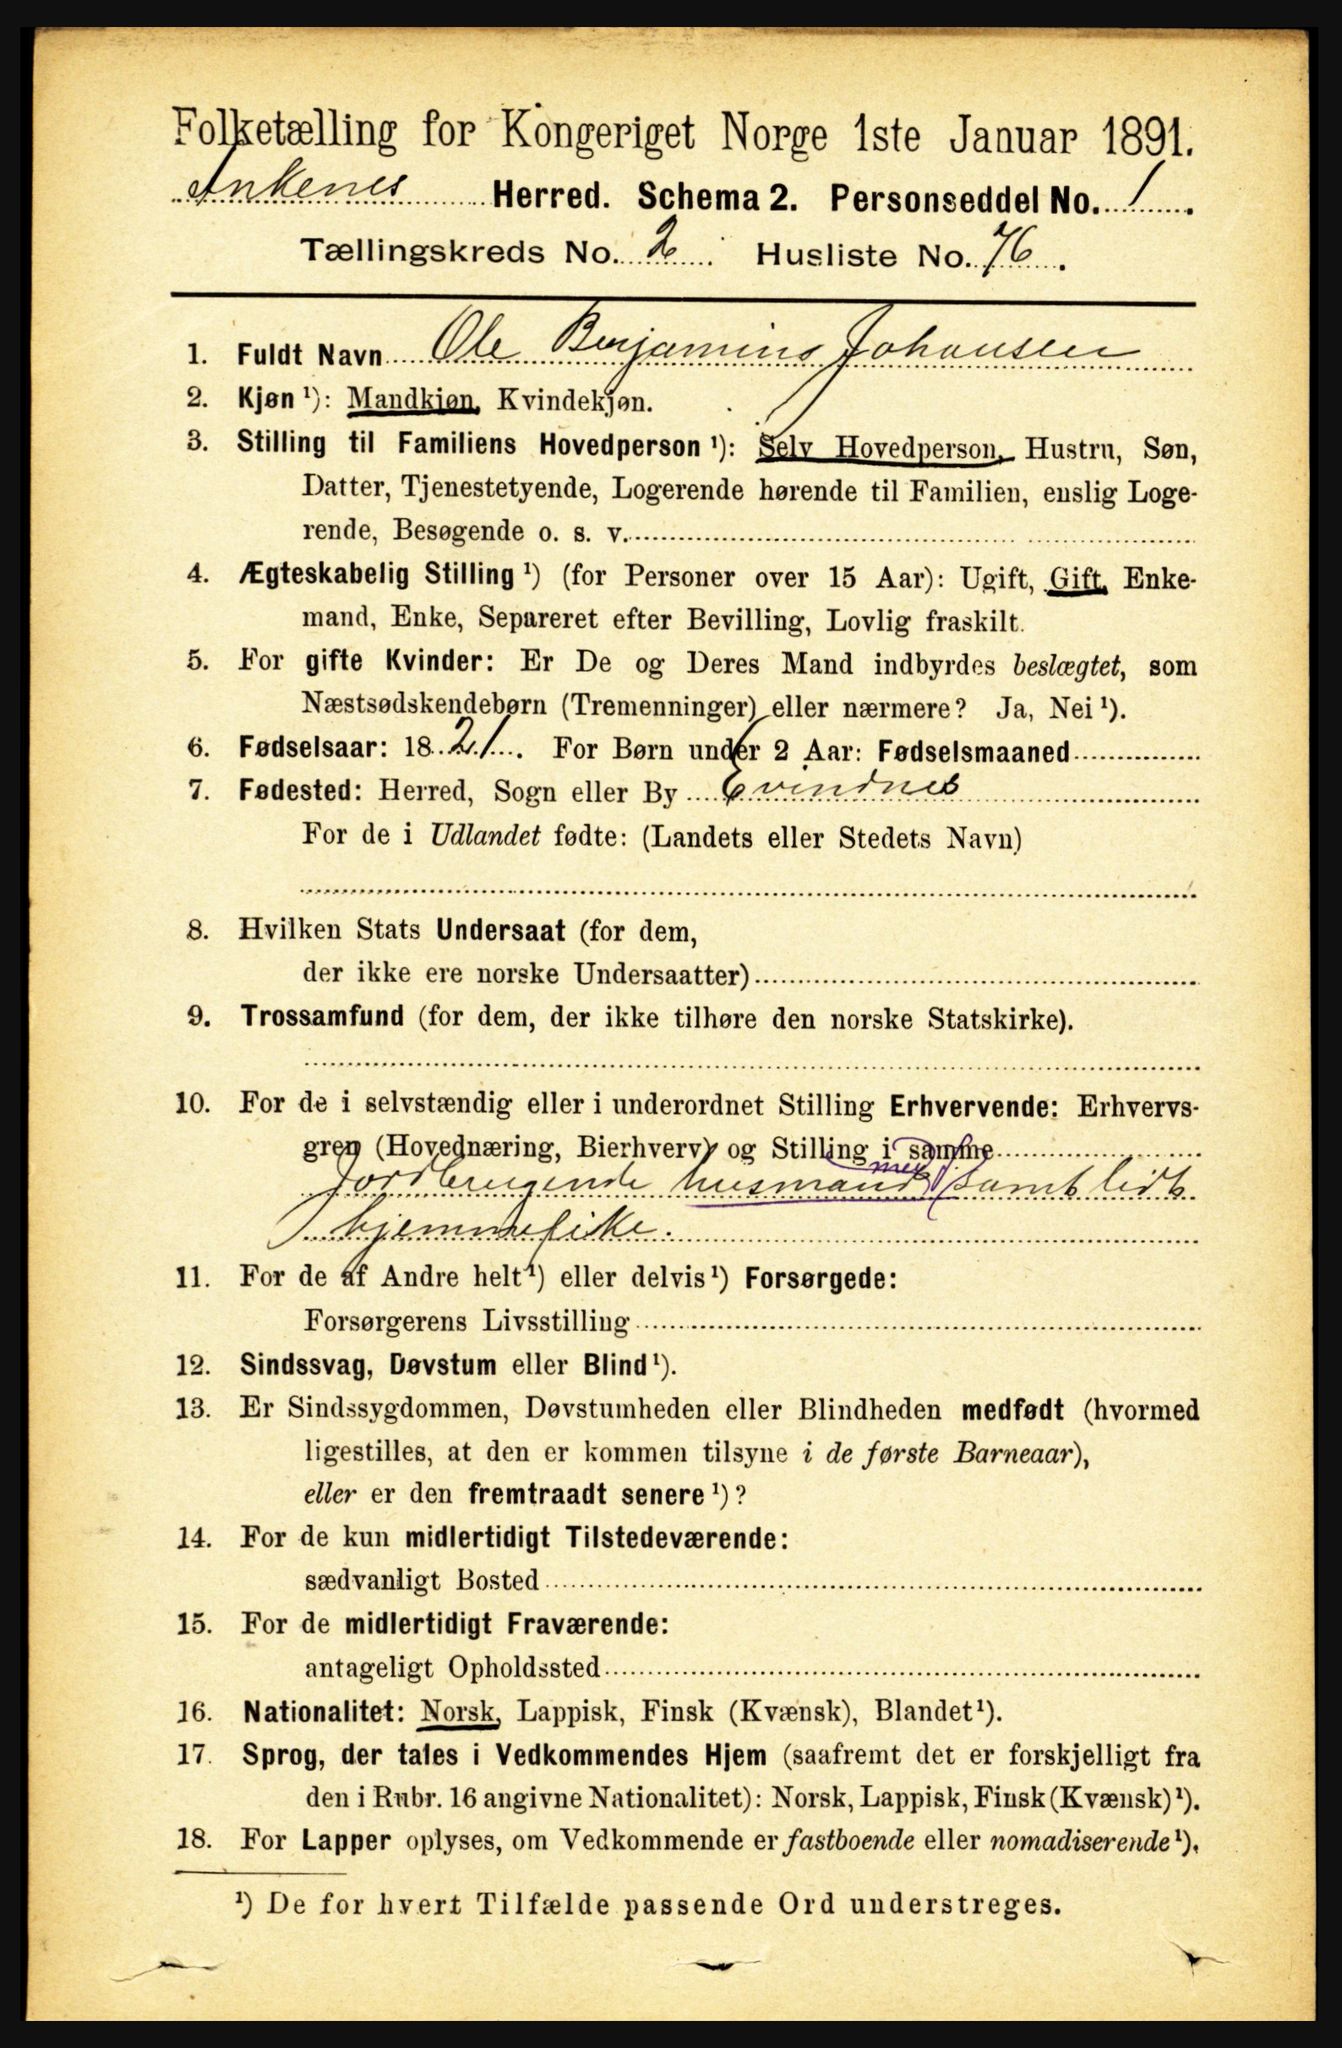 Folketælling for Kongeriget Norge 1ste Januar 1891.
Ankenes Herred. Schema 2. Personseddel No. 1.
Tællingskreds No. 2. Husliste No. 76.
1. Fuldt Navn Ole Benjamins Johansen
2. Kjøn ¹): Mandkjøn, Kvindekjøn.
3. Stilling til Familiens Hovedperson ¹): Selv Hovedperson, Hustru, Søn,
Datter, Tjenestetyende, Logerende hørende til Familien, enslig Loge-
rende, Besøgende o. s. v.
4. Ægteskabelig Stilling ¹) (for Personer over 15 Aar): Ugift, Gift, Enke-
mand, Enke, Separeret efter Bevilling, Lovlig fraskilt.
5. For gifte Kvinder: Er De og Deres Mand indbyrdes beslægtet, som
Næstsødskendebørn (Tremenninger) eller nærmere? Ja, Nei ¹).
6. Fødselsaar: 1821. For Børn under 2 Aar: Fødselsmaaned
7. Fødested: Herred, Sogn eller By Evindnes
For de i Udlandet fødte: (Landets eller Stedets Navn)
8. Hvilken Stats Undersaat (for dem,
der ikke ere norske Undersaatter)
9. Trossamfund (for dem, der ikke tilhøre den norske Statskirke).
10. For de i selvstændig eller i underordnet Stilling Erhvervende: Erhvervs-
gren (Hovednæring, Bierhverv) og Stilling i samme
Jordbrugende husmand samt lidt
hjemmefiske.
11. For de af Andre helt ¹) eller delvis ¹) Forsørgede:
Forsørgerens Livsstilling
12. Sindssvag, Døvstum eller Blind ¹).
13. Er Sindssygdommen, Døvstumheden eller Blindheden medfødt (hvormed
ligestilles, at den er kommen tilsyne i de første Barneaar),
eller er den fremtraadt senere ¹)?
14. For de kun midlertidigt Tilstedeværende:
sædvanligt Bosted
15. For de midlertidigt Fraværende:
antageligt Opholdssted
16. Nationalitet: Norsk, Lappisk, Finsk (Kvænsk), Blandet ¹).
17. Sprog, der tales i Vedkommendes Hjem (saafremt det er forskjelligt fra
den i Rubr. 16 angivne Nationalitet): Norsk, Lappisk, Finsk (Kvænsk) ¹).
18. For Lapper oplyses, om Vedkommende er fastboende eller nomadiserende ¹).
¹) De for hvert Tilfælde passende Ord understreges.